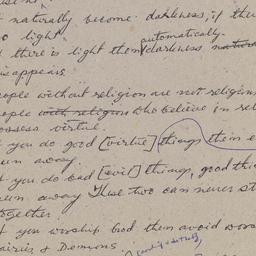 t naturally become darkness, if the
o light.
automatically
there is light then darkness natura
isappears.
eople without religion are not religious
eople with religion who believe in rel
ossess virtue.
you do good [virtue] things then e
un away.
f you do bad [evil] things, good thi
un away. These two can never st
together.
f you worship God then avoid wors
airies & Demons.